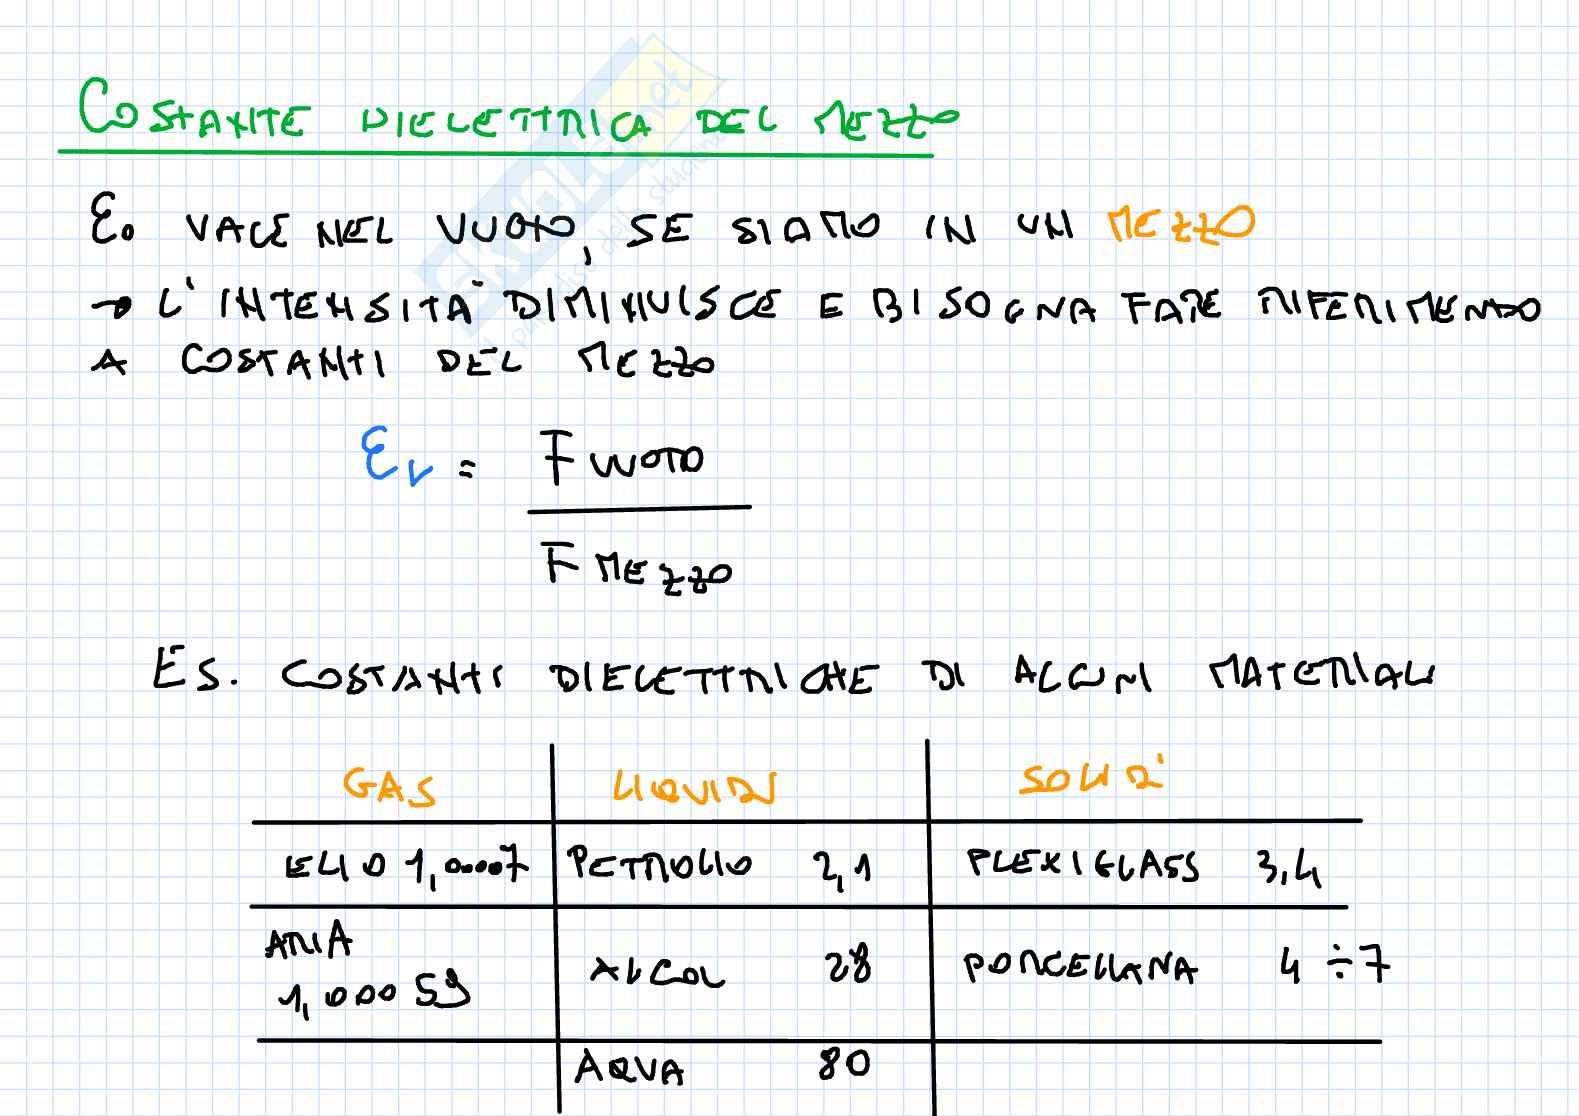 COSTANTE DIELETTRICA DEL MEZZO
ε₀ VALE NEL VUOTO, SE SIAMO IN UN MEZZO
→ L'INTENSITÀ DIMINUISCE E BISOGNA FARE RIFERIMENTO
A COSTANTI DEL MEZZO
εr = F VUOTO
F MEZZO
ES. COSTANTI DIELETTRICHE DI ALCUNI MATERIALI
GAS LIQUIDI SOLIDI
ELIO 1,00007 PETROLIO 2,1 PLEXIGLASS 3,4
ARIA
1,00059 ALCOL 28 PORCELLANA 4 ÷ 7
AQUA 80
SKUOLA.net
il paradiso dello studente